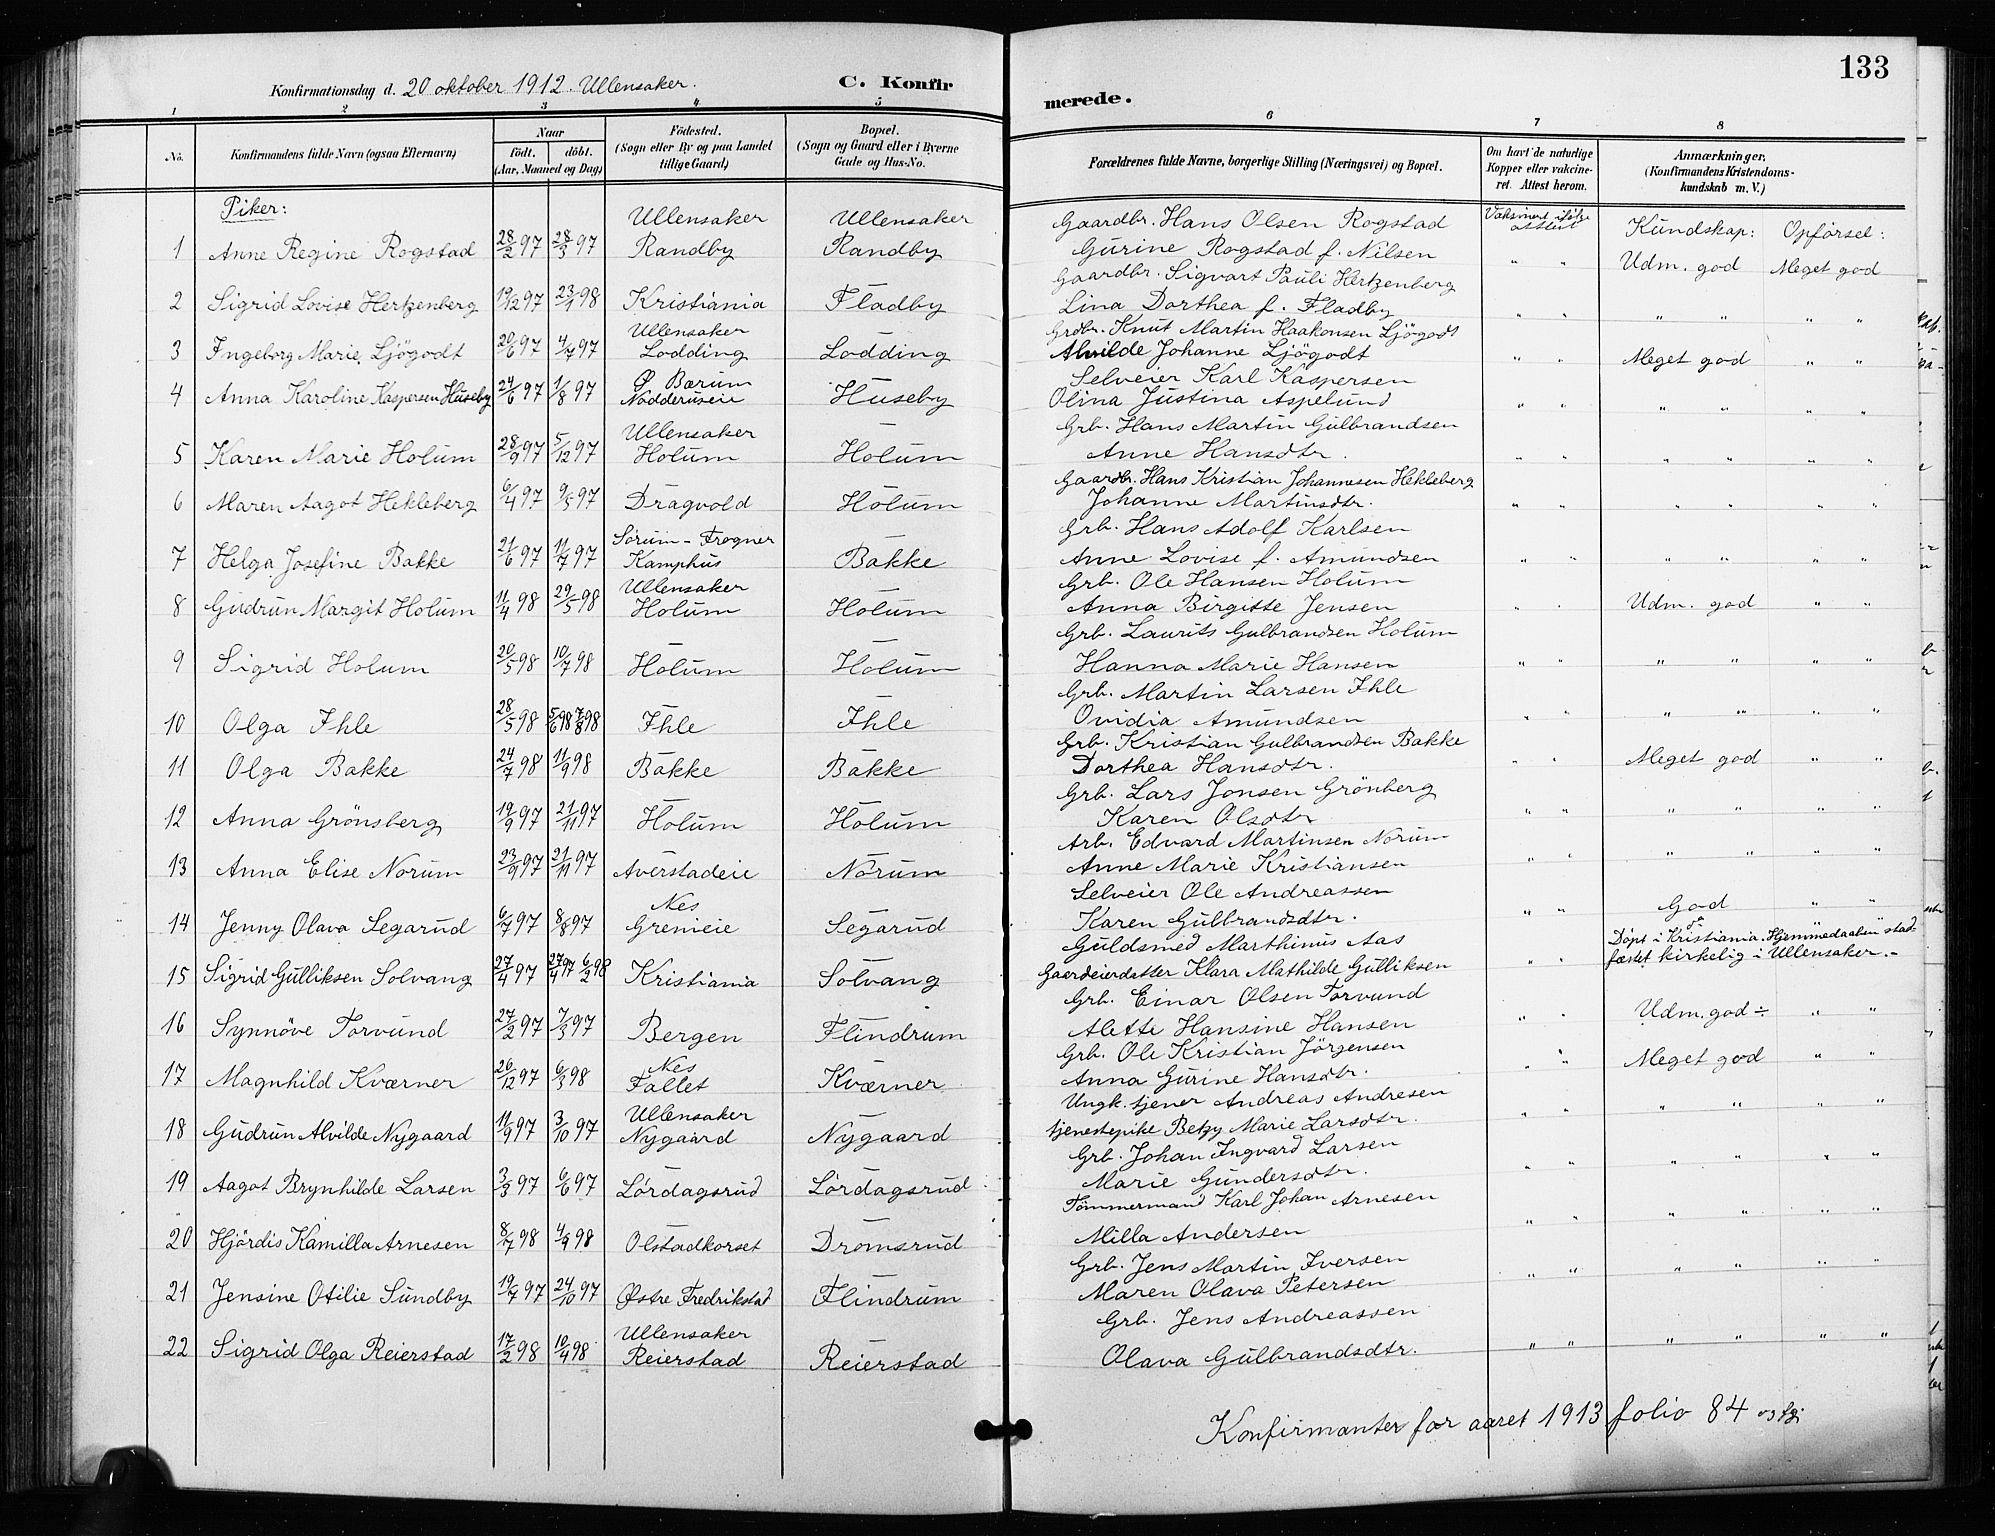 133
Konfirmationsdag d. 20 oktober 1912. Ullensaker. C. Konfirmerede.
1 2 3 4 5 6 7 8
No. Konfirmandens fulde Navn (ogsaa Efternavn) Naar födt. döbt. (Aar, Maaned og Dag)
Födested. (Sogn eller By og paa Landet tillige Gaard)
Bopæl. (Sogn og Gaard eller i Byerne Gade og Hus-No.
Forældrenes fulde Navne, borgerlige Stilling (Næringsvei) og Bopæl.
Om havt de naturlige Kopper eller vakcineret. Attest herom.
Anmærkninger, (Konfirmandens Kristendomskundskab m. V.)
Piker: Ullensaker Ullensaker Gaardbr. Hans Olsen Rogstad Vaksinert ifølge attest Kundskap: Opførsel:
1 Anne Regine Rogstad 28/2 97 28/3 97 Randby Randby Gurine Rogstad f. Nilsen " " Udm. god Meget god
Gaardbr. Sigvart Pauli Hertzenberg
2 Sigrid Lovise Hertzenberg 19/12 97 23/1 98 Kristiania Fladby Lina Dorthea f. Fladby " " " " " "
Ullensaker Grdbr. Knut Martin Haakonsen Ljögodt
3 Ingeborg Marie Ljögodt 20/6 97 4/7 97 Lodding Lodding Alvilde Johanne Ljögodt " " Meget god " "
Ø. Bærum Selveier Karl Kaspersen
4 Anna Karoline Kaspersen Huseby 24/6 97 1/8 97 Nadderuseie Huseby Olina Justina Aspelund " " " " " "
Ullensaker Grb. Hans Martin Gulbrandsen
5 Karen Marie Holum 28/9 97 5/12 97 Holum Holum Anne Hansdtr. " " " " " "
Gaardbr. Hans Kristian Johannesen Hekleberg
6 Maren Aagot Hekleberg 6/4 97 9/5 97 Dragvold Holum Johanne Martinsdtr. " " " " " "
Sørum-Frogner Grb. Hans Adolf Karlsen
7 Helga Josefine Bakke 21/6 97 11/7 97 Kamphus Bakke Anne Lovise f. Amundsen " " " " " "
Ullensaker Grb. Ole Hansen Holum
8 Gudrun Margit Holum 11/4 98 29/5 98 Holum Holum Anna Birgitte Jensen " " Udm. god " "
Grb. Laurits Gulbrandsen Holum
9 Sigrid Holum 20/5 98 10/7 98 Holum Holum Hanna Marie Hansen " " " " " "
Grb. Martin Larsen Ihle
10 Olga Ihle 28/5 98 5/6 98 7/8 98 Ihle Ihle Ovidia Amundsen " " " " " "
Grb. Kristian Gulbrandsen Bakke
11 Olga Bakke 24/7 98 11/9 98 Bakke Bakke Dorthea Hansdtr. " " Meget god " "
Grb. Lars Jonsen Grönberg
12 Anna Grönsberg 19/9 97 21/11 97 Holum Holum Karen Olsdtr " " " " " "
Arb. Edvard Martinsen Norum
13 Anna Elise Norum 23/9 97 21/11 97 Averstadeie Norum Anne Marie Kristiansen " " " " " "
Nes Selveier Ole Andreassen
14 Jenny Olava Segarud 6/7 97 8/8 97 Grenieie Segarud Karen Gulbrandsdtr. " " God " "
Guldsmed Marthinus Aas Döpt i Kristiania. Hjemmedaaben stad-
15 Sigrid Gulliksen Solvang 27/4 97 27/4 97 6/2 98 Kristiania Solvang Gaardeierdatter Klara Mathilde Gulliksen " " fæstet kirkelig i Ullensaker.-
Grb. Einar Olsen Torvund
16 Synnöve Torvund 27/2 97 7/3 97 Bergen Flindrum Alette Hansine Hansen " " Udm. god ÷ " "
Nes Grb. Ole Kristian Jörgensen
17 Magnhild Kværner 26/12 97 6/3 98 Fallet Kværner Anna Gurine Hansdtr. " " Meget god " "
Ullensaker Ungk. tjener Andreas Andresen
18 Gudrun Alvilde Nygaard 11/9 97 3/10 97 Nygaard Nygaard tjenestepike Betzy Marie Larsdtr. " " " " " "
Grb. Johan Ingvard Larsen
19 Aagot Brynhilde Larsen 3/3 97 6/6 97 Lørdagsrud Lørdagsrud Marie Gundersdtr. " " " " " "
Tömmermand Karl Johan Arnesen
20 Hjördis Kamilla Arnesen 8/7 98 4/9 98 Olstadkorset Dromsrud Milla Andersen " " " " " "
Grb. Jens Martin Iversen
21 Jensine Otilie Sundby 19/7 97 24/10 97 Østre Fredrikstad Flindrum Maren Olava Petersen " " " " " "
Ullensaker Grb. Jens Andreassen
22 Sigrid Olga Reierstad 17/2 98 10/4 98 Reierstad Reierstad Olava Gulbrandsdtr. " " " " " "
Konfirmanter for aaret 1913 folio 84 og fgi